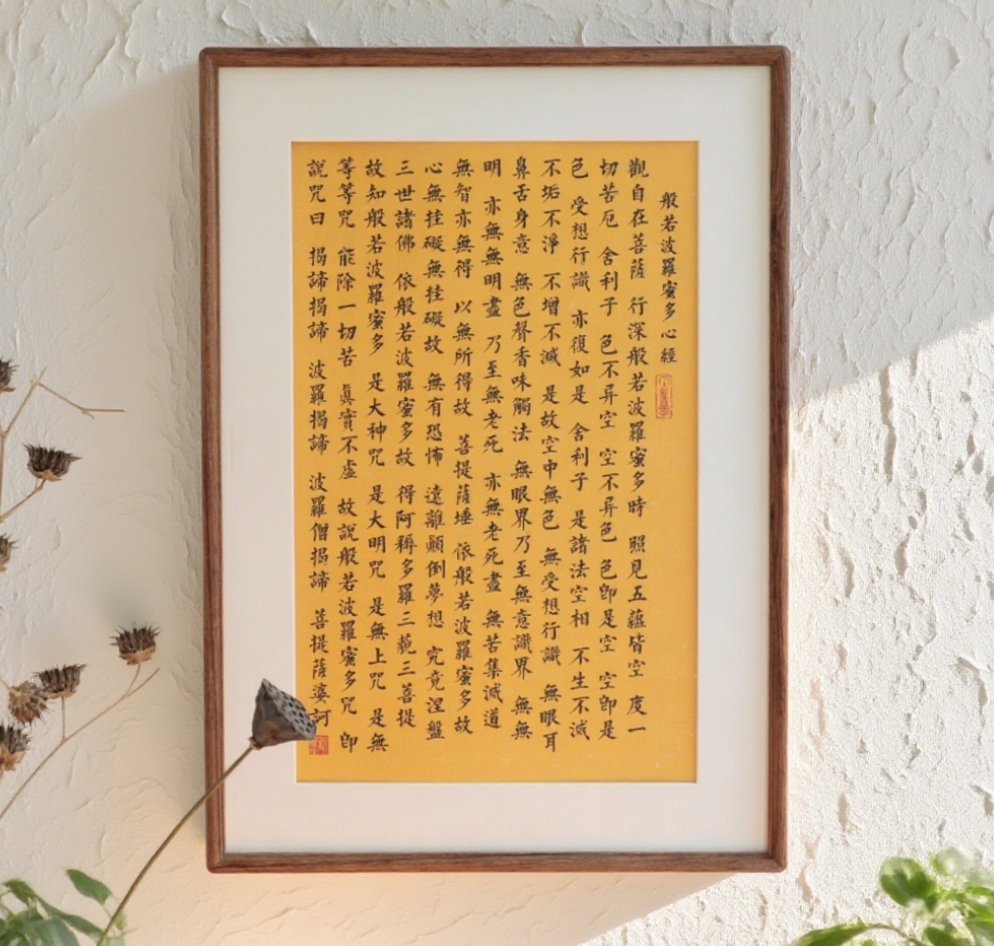 般若波羅蜜多心經
觀自在菩薩 行深般若波羅蜜多時 照見五蘊皆空 度一
切苦厄 舍利子 色不异空 空不异色 色卽是空 空卽是
色 受想行識 亦復如是 舍利子 是諸法空相 不生不滅
不垢不淨 不增不減 是故空中無色 無受想行識 無眼耳
鼻舌身意 無色聲香味觸法 無眼界乃至無意識界 無無
明 亦無無明盡 乃至無老死 亦無老死盡 無苦集滅道
無智亦無得 以無所得故 菩提薩埵 依般若波羅蜜多故
心無挂礙無挂礙故 無有恐怖 遠離顛倒夢想 究竟涅盤
三世諸佛 依般若波羅蜜多故 得阿耨多羅三藐三菩提
故知般若波羅蜜多 是大神咒 是大明咒 是無上咒 是無
等等咒 能除一切苦 眞實不虛 故說般若波羅蜜多咒 卽
說咒曰 揭諦揭諦 波羅揭諦 波羅僧揭諦 菩提薩婆訶